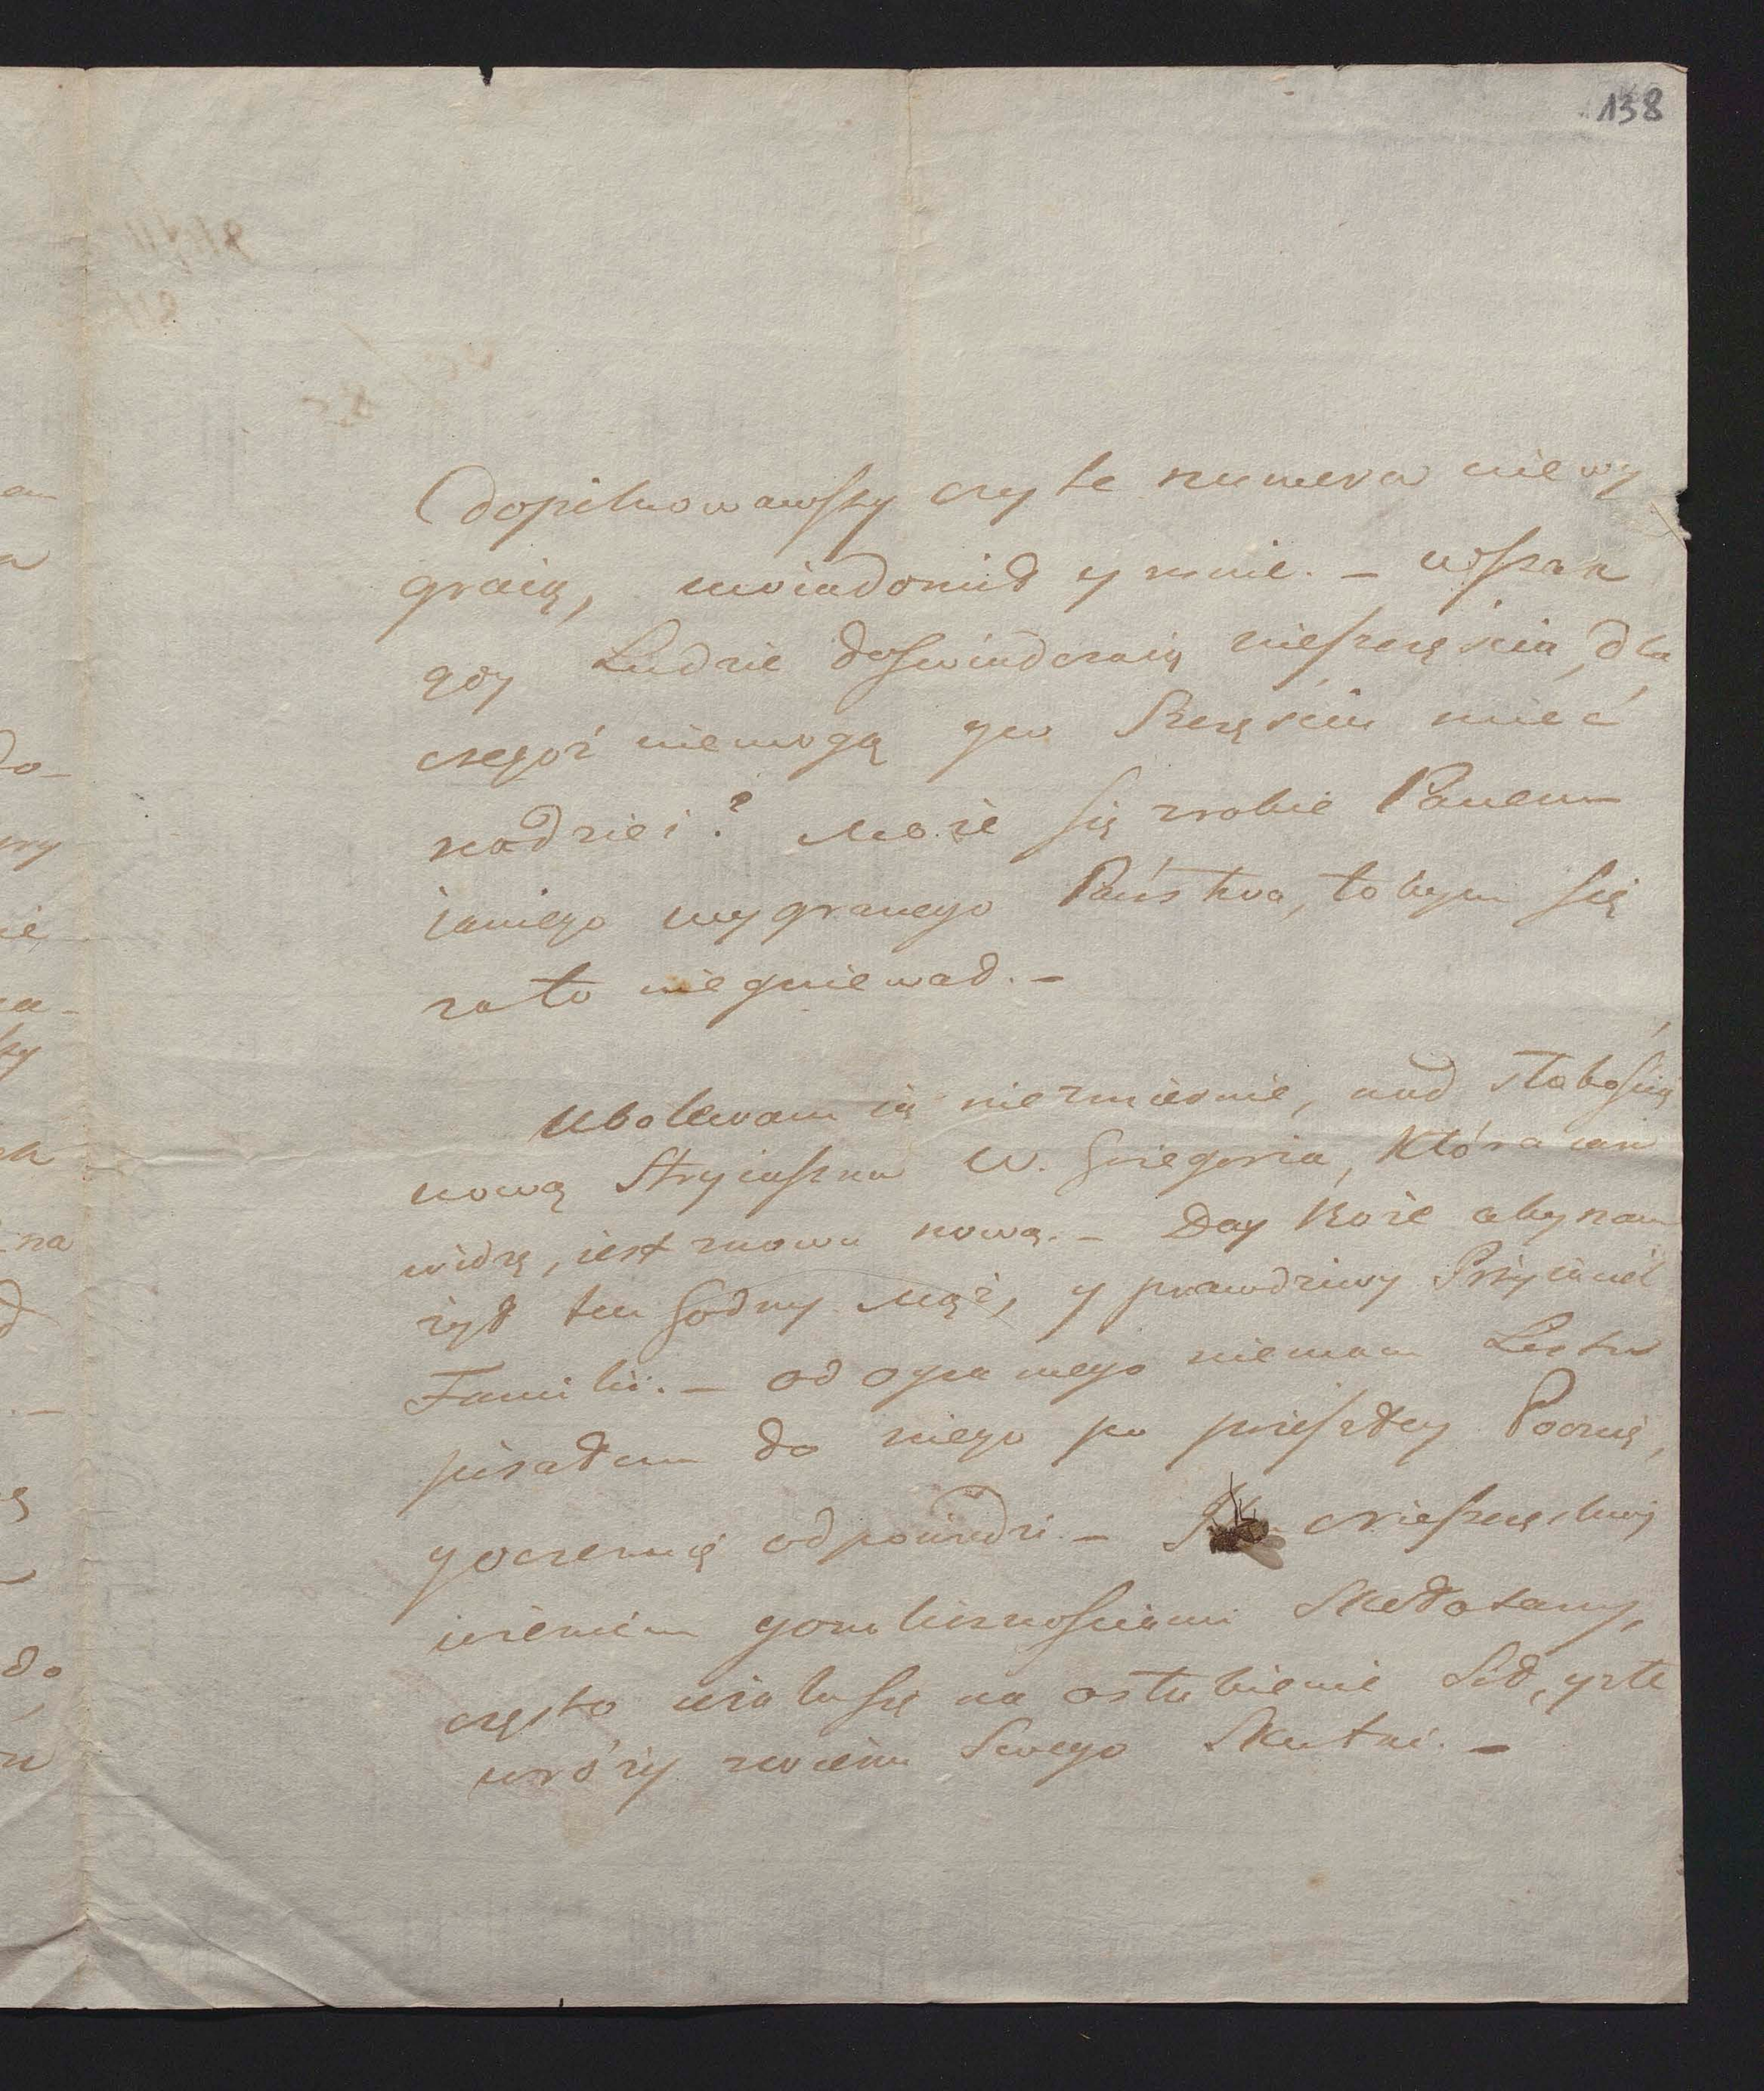 138
dopilnowawszy czy te numera nie wy
graią, uwiadomił y mnie. – wszak
gdy Ludzie doświadczaią nieszczęścia, dla
czegoż niemogą y w Szczęściu mieć
nadziei? może się zrobie Panem
iakiego wygranego Państwa, to bym się
za to nie gniewał. –
Ubolewam ią niezmiernie, nad słabością
nową Stryiaszka W. Grzegorza, Która iak
widzę, iest znowu nową. – Day Boże aby nam
żył ten Godny Mąż, y prawdziwy Przyiaciel
Familii. – od Oyca mego niemam Listu
pisałem do niego po przeszłey Poczcie,
y oczekuię odpowiedzi –
okolicznościami Skołatany,
często użala się na osłabienie Sił, y złe
wróży życiu Swego Skutki. –